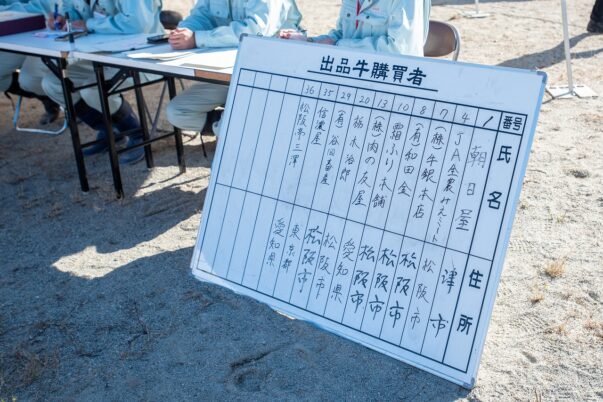 出品牛購買者
番号 氏名 住所
1 朝日屋 津市
4 JA全農みえミート 松阪市
7 (株)牛銀本店 松阪市
8 (有)和田金 松阪市
10 霜ふり本舗 松阪市
13 (株)肉の久屋 愛知県
20 栃木治郎 松阪市
29 (有)谷田畜産 松阪市
35 信濃屋 東京都
36 松阪亭三澤 愛知県